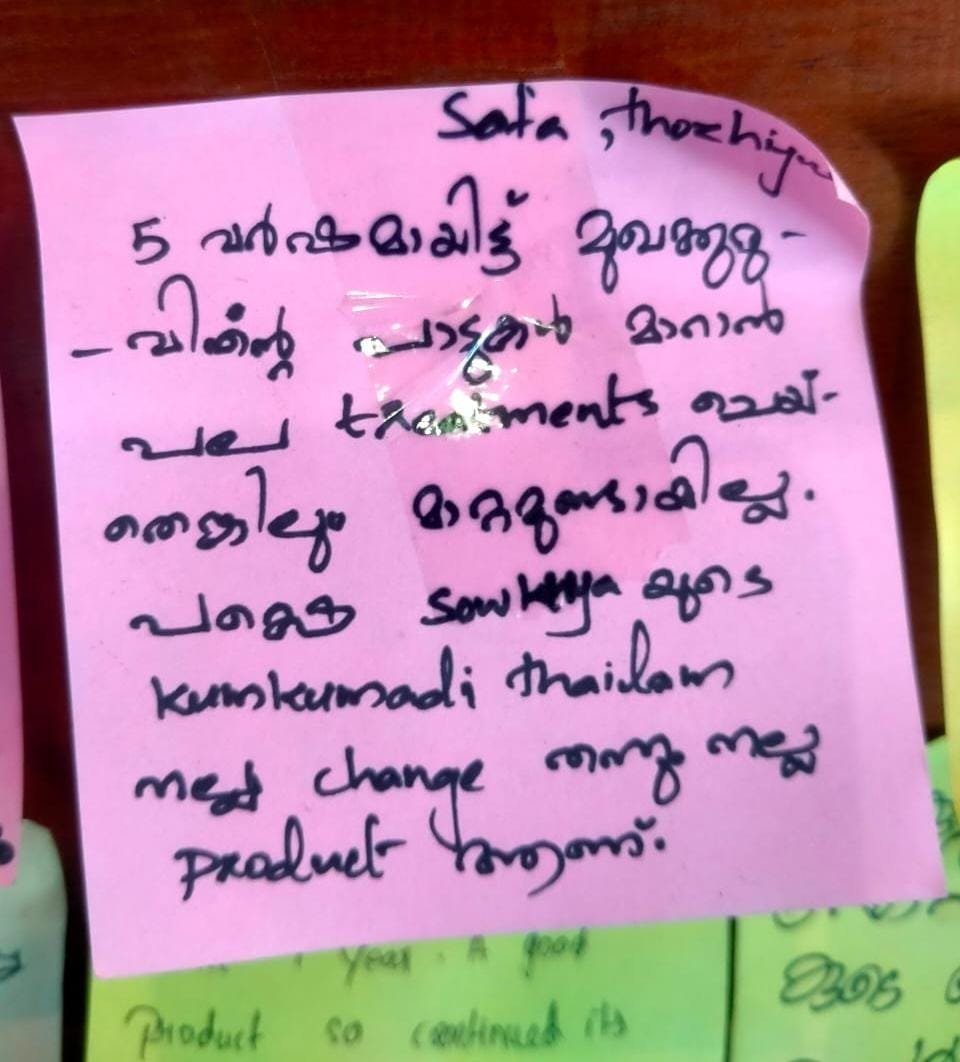 Safa, thozhiyur
5 വർഷമായിട്ട് മുഖക്കുരു-
-വിന്റെ പാടുകൾ മാറാൻ
പല treatments ചെയ്-
തെങ്കിലും മാറ്റമുണ്ടായില്ല.
പക്ഷെ Sowkhya യുടെ
kumkumadi thailam
നല്ല change തന്നു നല്ല
product ആണ്.
year. A good
product so continued its
ളുടെ